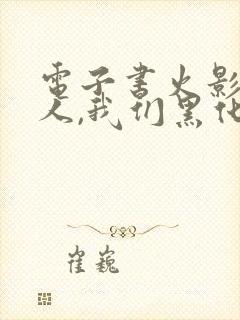 電子書火影
人,我们黑化
崔巍